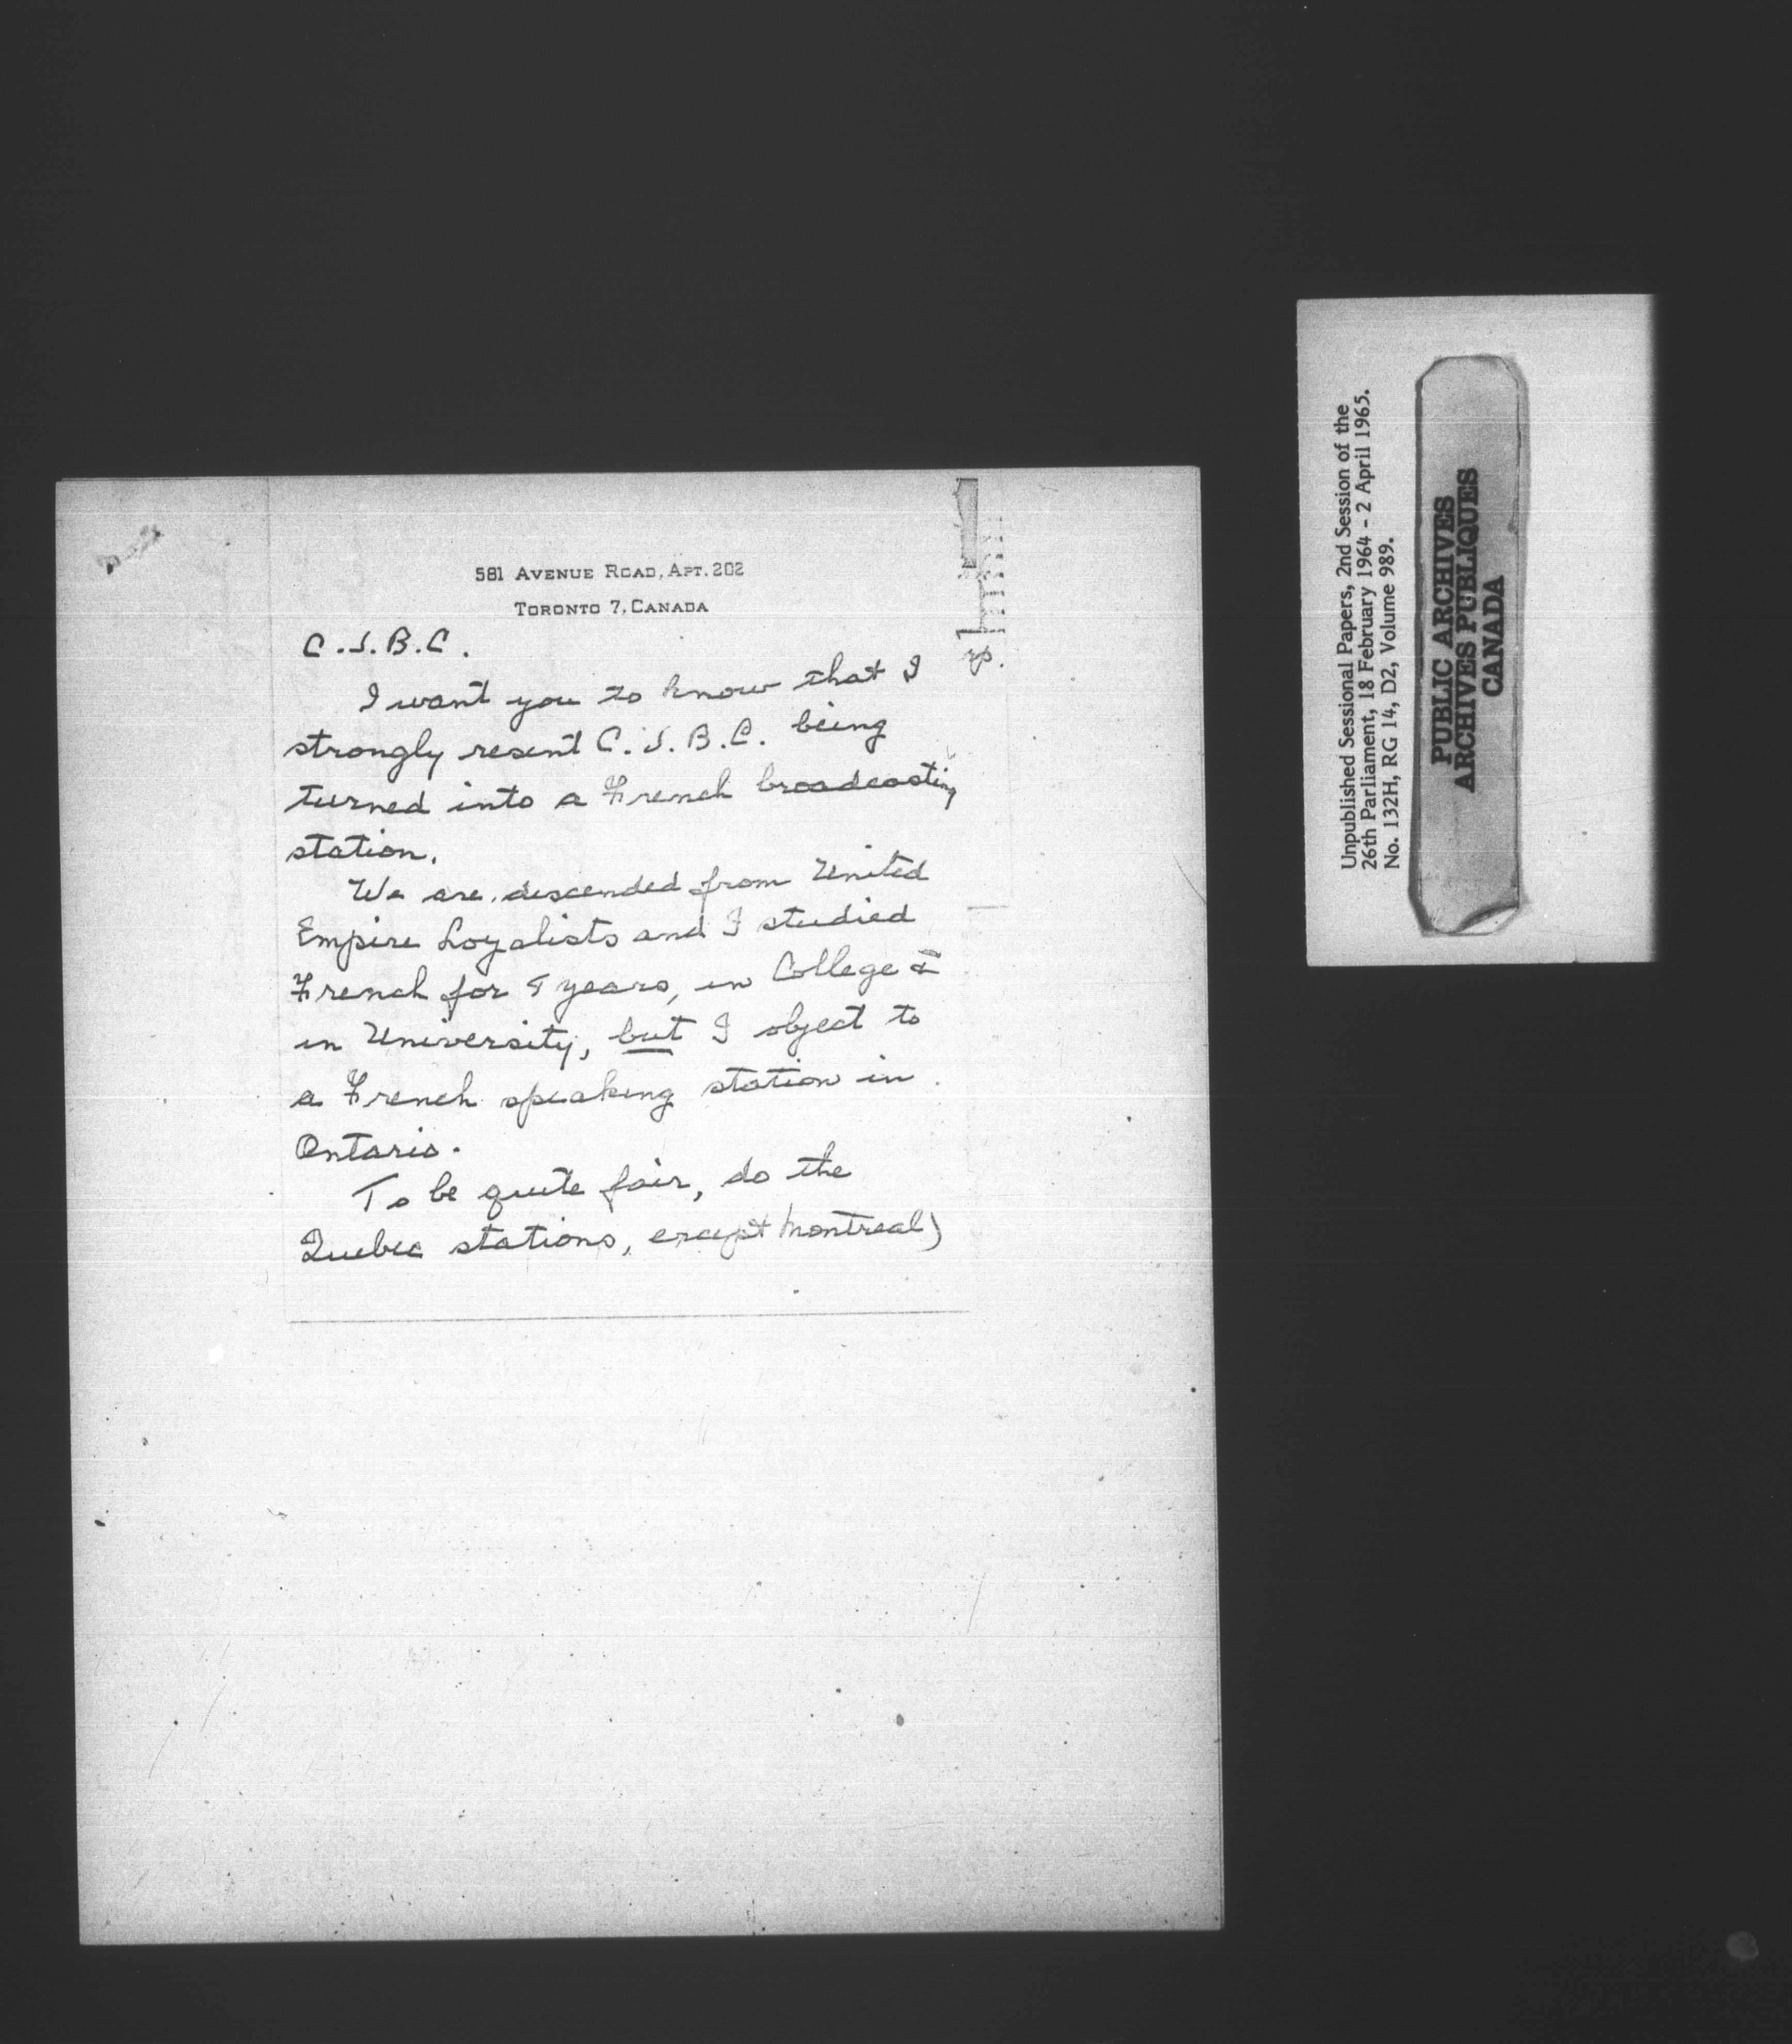 581 AVENUE ROAD, APT. 202
TORONTO 7, CANADA
C.J.B.C.
I want you to know that I
strongly resent C.J.B.C. being
turned into a French broadcasting
station.
We are descended from United
Empire Loyalists and I studied
French for years, in College &
in University, but I object to
a French speaking station in
Ontario.
To be quite fair, do the
Quebec stations, except Montreal)
Unpublished Sessional Papers, 2nd Session of the
26th Parliament, 18 February 1964 - 2 April 1965.
No. 132H, RG 14, D2, Volume 989.
PUBLIC ARCHIVES
ARCHIVES PUBLIQUES
CANADA